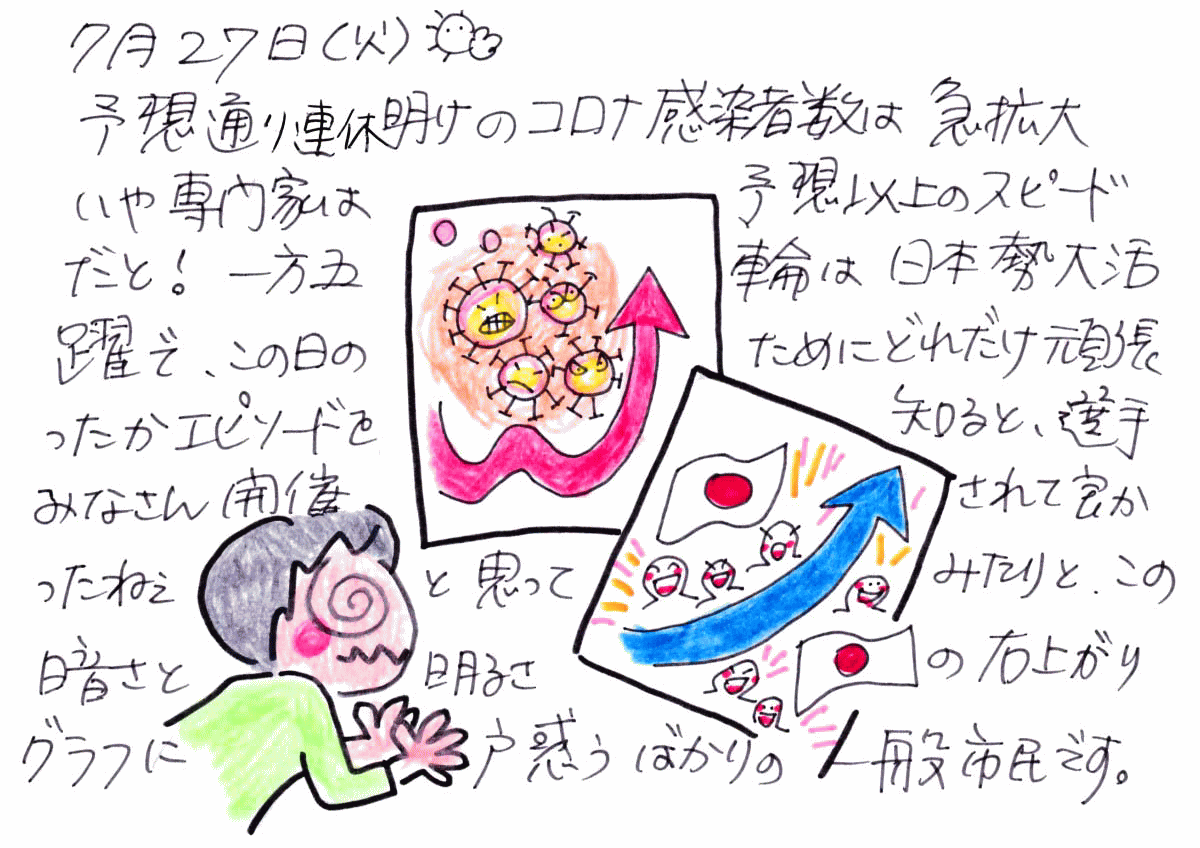 7月27日(火)
予想通り連休明けのコロナ感染者数は 急拡大
いや専門家は 予想以上のスピード
だと! 一方五 輪は 日本勢大活
躍で、この日の ためにどれだけ頑張
ったかエピソードを 知ると、選手
みなさん開催 されて良か
ったねぇ と思って みたりと、この
暗さと 明るさ の右上がり
グラフに 戸惑うばかりの 一般市民です。